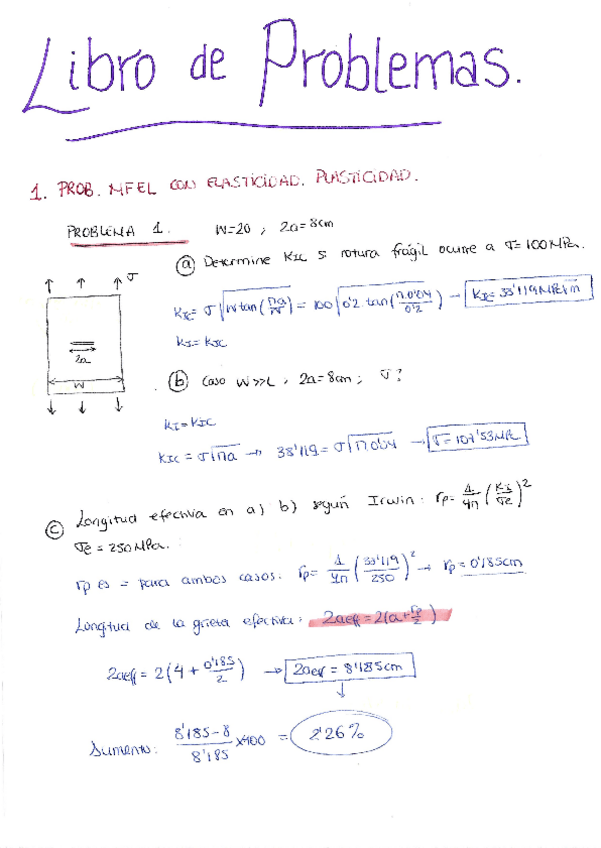 Libro de Problemas.
1. PROB. MFEL CON ELASTICIDAD. PLASTICIDAD.
PROBLEMA 1. W=20 ; 2a=8cm
ⓐ Determine KIC si rotura frágil ocurre a σ=100MPa.
σ
KIC= σ√(W tan(πa/W)) = 100√(0'2 tan(π·0'04/0'2)) → KIC= 38'119MPa√m
KI=KIC
2a
W
ⓑ Caso W>>L ; 2a=8cm; σ?
KI=KIC
KIC = σ√πa → 38'119=σ√π0'04 → σ=107'53MPa
ⓒ Longitud efectiva en a) b) según Irwin: rp= 1/4π (KI/σe)²
σe = 250MPa.
rp es = para ambos casos. rp= 1/4π (38'119/250)² → rp=0'185cm
Longitud de la grieta efectiva: 2aeff=2(a+rp/2)
2aeff= 2(4 + 0'185/2) → 2aeff = 8'185cm
Aumento: 8'185-8/8'185 x100 = 2'26%